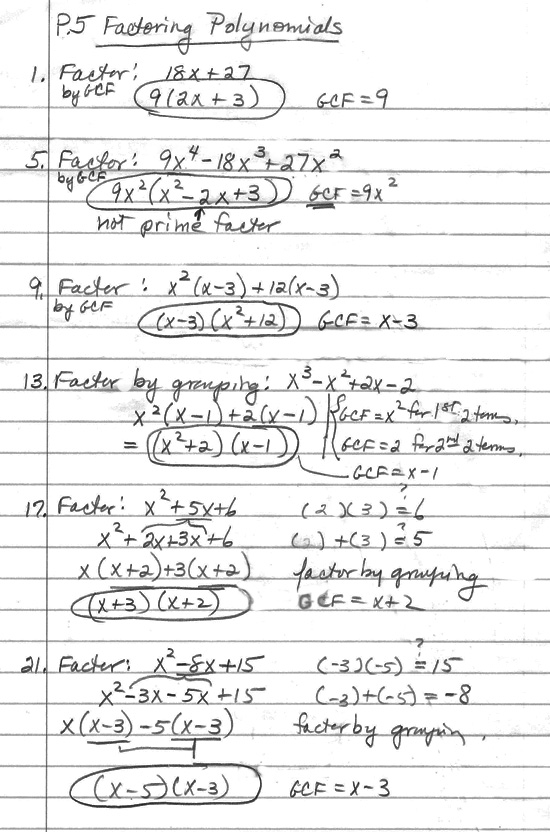 P.5 Factoring Polynomials
1. Factor: 18x+27
by GCF 9(2x+3) GCF=9
5. Factor: 9x⁴-18x³+27x²
by GCF 9x²(x²-2x+3) GCF=9x²
not prime factor
9. Factor: x²(x-3)+12(x-3)
by GCF (x-3)(x²+12) GCF=x-3
13. Factor by grouping: x³-x²+2x-2
x²(x-1)+2(x-1) GCF=x² for 1st 2 terms,
=(x²+2)(x-1) GCF=2 for 2nd 2 terms,
GCF=x-1
17. Factor: x²+5x+6 (2)(3)≟6
x²+2x+3x+6 (2)+(3)≟5
x(x+2)+3(x+2) factor by grouping
(x+3)(x+2) GCF=x+2
21. Factor: x²-8x+15 (-3)(-5)≟15
x²-3x-5x+15 (-3)+(-5)=-8
x(x-3)-5(x-3) factor by
(x-5)(x-3) GCF=x-3